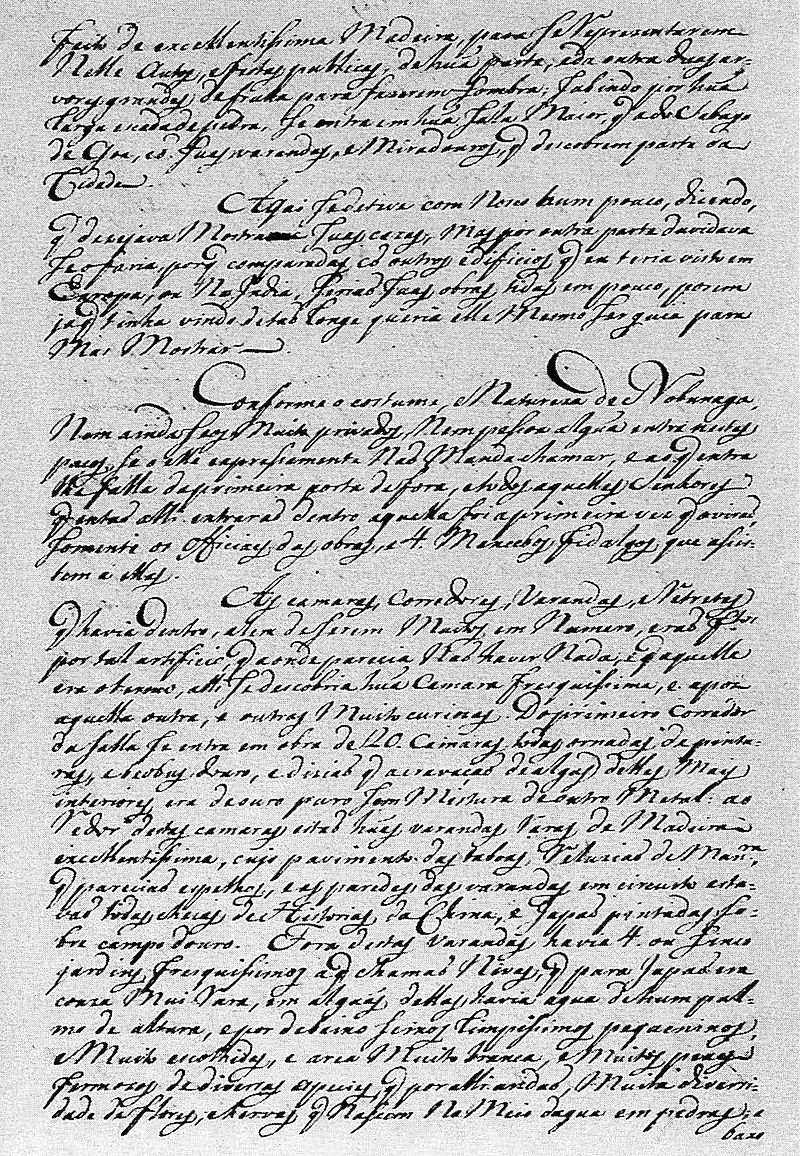 feito de excellentissima Madeira, para se representarem
Nelle Autos, e festas publicas, de hũa parte, e da outra duas ar-
vores grandes de fruita para fazerem sombra; sabindo por hũa
larga escada de pedra, se entra em hũa sala Maior, q̃ a do Sabayo
de Goa, cõ suas varandas, e Miradouros, q̃ descobrem parte da
Cidade.
Aqui se deteve com Nosco hum pouco, dizendo,
q̃ desejava Mostrar suas cazas, Mas por outra parte duvidava
se o faria, porq̃ comparadas cõ outros edificios, q̃ eu teria visto em
Europa, ou Na India, seriaõ suas obras tidas em pouco, porem
ja q̃ tinha vindo de taõ longe queria elle Mesmo ser guia para
Mas Mostrar.
Conforme o costume, e Natureza de Nobunaga,
Nem ainda seos Muito privados, Nem pessoa algũa entra nestes
paços, se o elle expressamente Naõ Manda chamar, e ao q̃ entra
lhe falla da primeira porta de fora, e todos aquelles Senhores
q̃ entaõ alli entraraõ dentro aquella foi a primeira vez q̃ o viraõ,
somente os officiaes das obras, e 4. Mancebos fidalgos, que assis-
tem a ellas.
As camaras, corredores, varandas, e Retretes
q̃ havia dentro, alem de serem Muitos em Numero, eraõ f.tos
por tal artificio, q̃ aonde parecia Naõ haver Nada, e q̃ aquelle
era o termo, alli se descobria hũa camara fresquissima, e apoz
aquella outra, e outras Muito curiozas. Do primeiro corredor
da salla se entra em obra de 20. camaras todas ornadas de pintu-
ras, e beobus douro, e diziaõ q̃ a cravaçaõ de algũas dellas Mais
interiores era de ouro puro sem Mistura de outro Metal: ao
Redor destas camaras estaõ hũas varandas Raras de Madeira
excellentissima, cujo pavimento das taboas Reluziaõ de Man.ra,
q̃ pareciaõ espelhos, e as paredes das varandas em circuito esta-
vaõ todas cheias de Historias da China, e Japaõ pintadas so-
bre campo douro. Fora destas varandas havia 4. ou sinco
jardins fresquissimos a q̃ chamaõ Nivas, q̃ para Japaõ era
couza Mui Rara, em alguns delles havia agua de hum pal-
mo de altura, e por debaixo seixos limpissimos pequeninos,
e Muito escolhidos, e area Muito branca, e Muitos peixes
fermozos de diversas especies q̃ por alli andaõ, Muita diversi-
dade de flores, e hervas q̃ Nasiem No Meio dagua em pedras, e
baxo